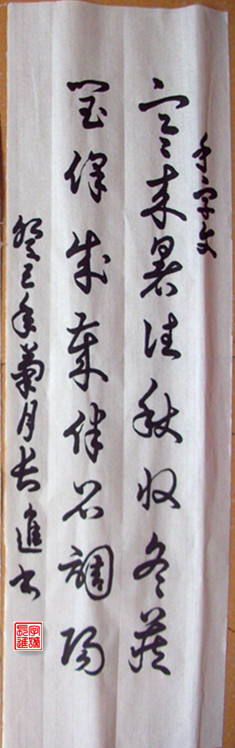 千字文
寒来暑往秋收冬藏
闰馀成岁律吕調陽
癸巳年菊月长進书